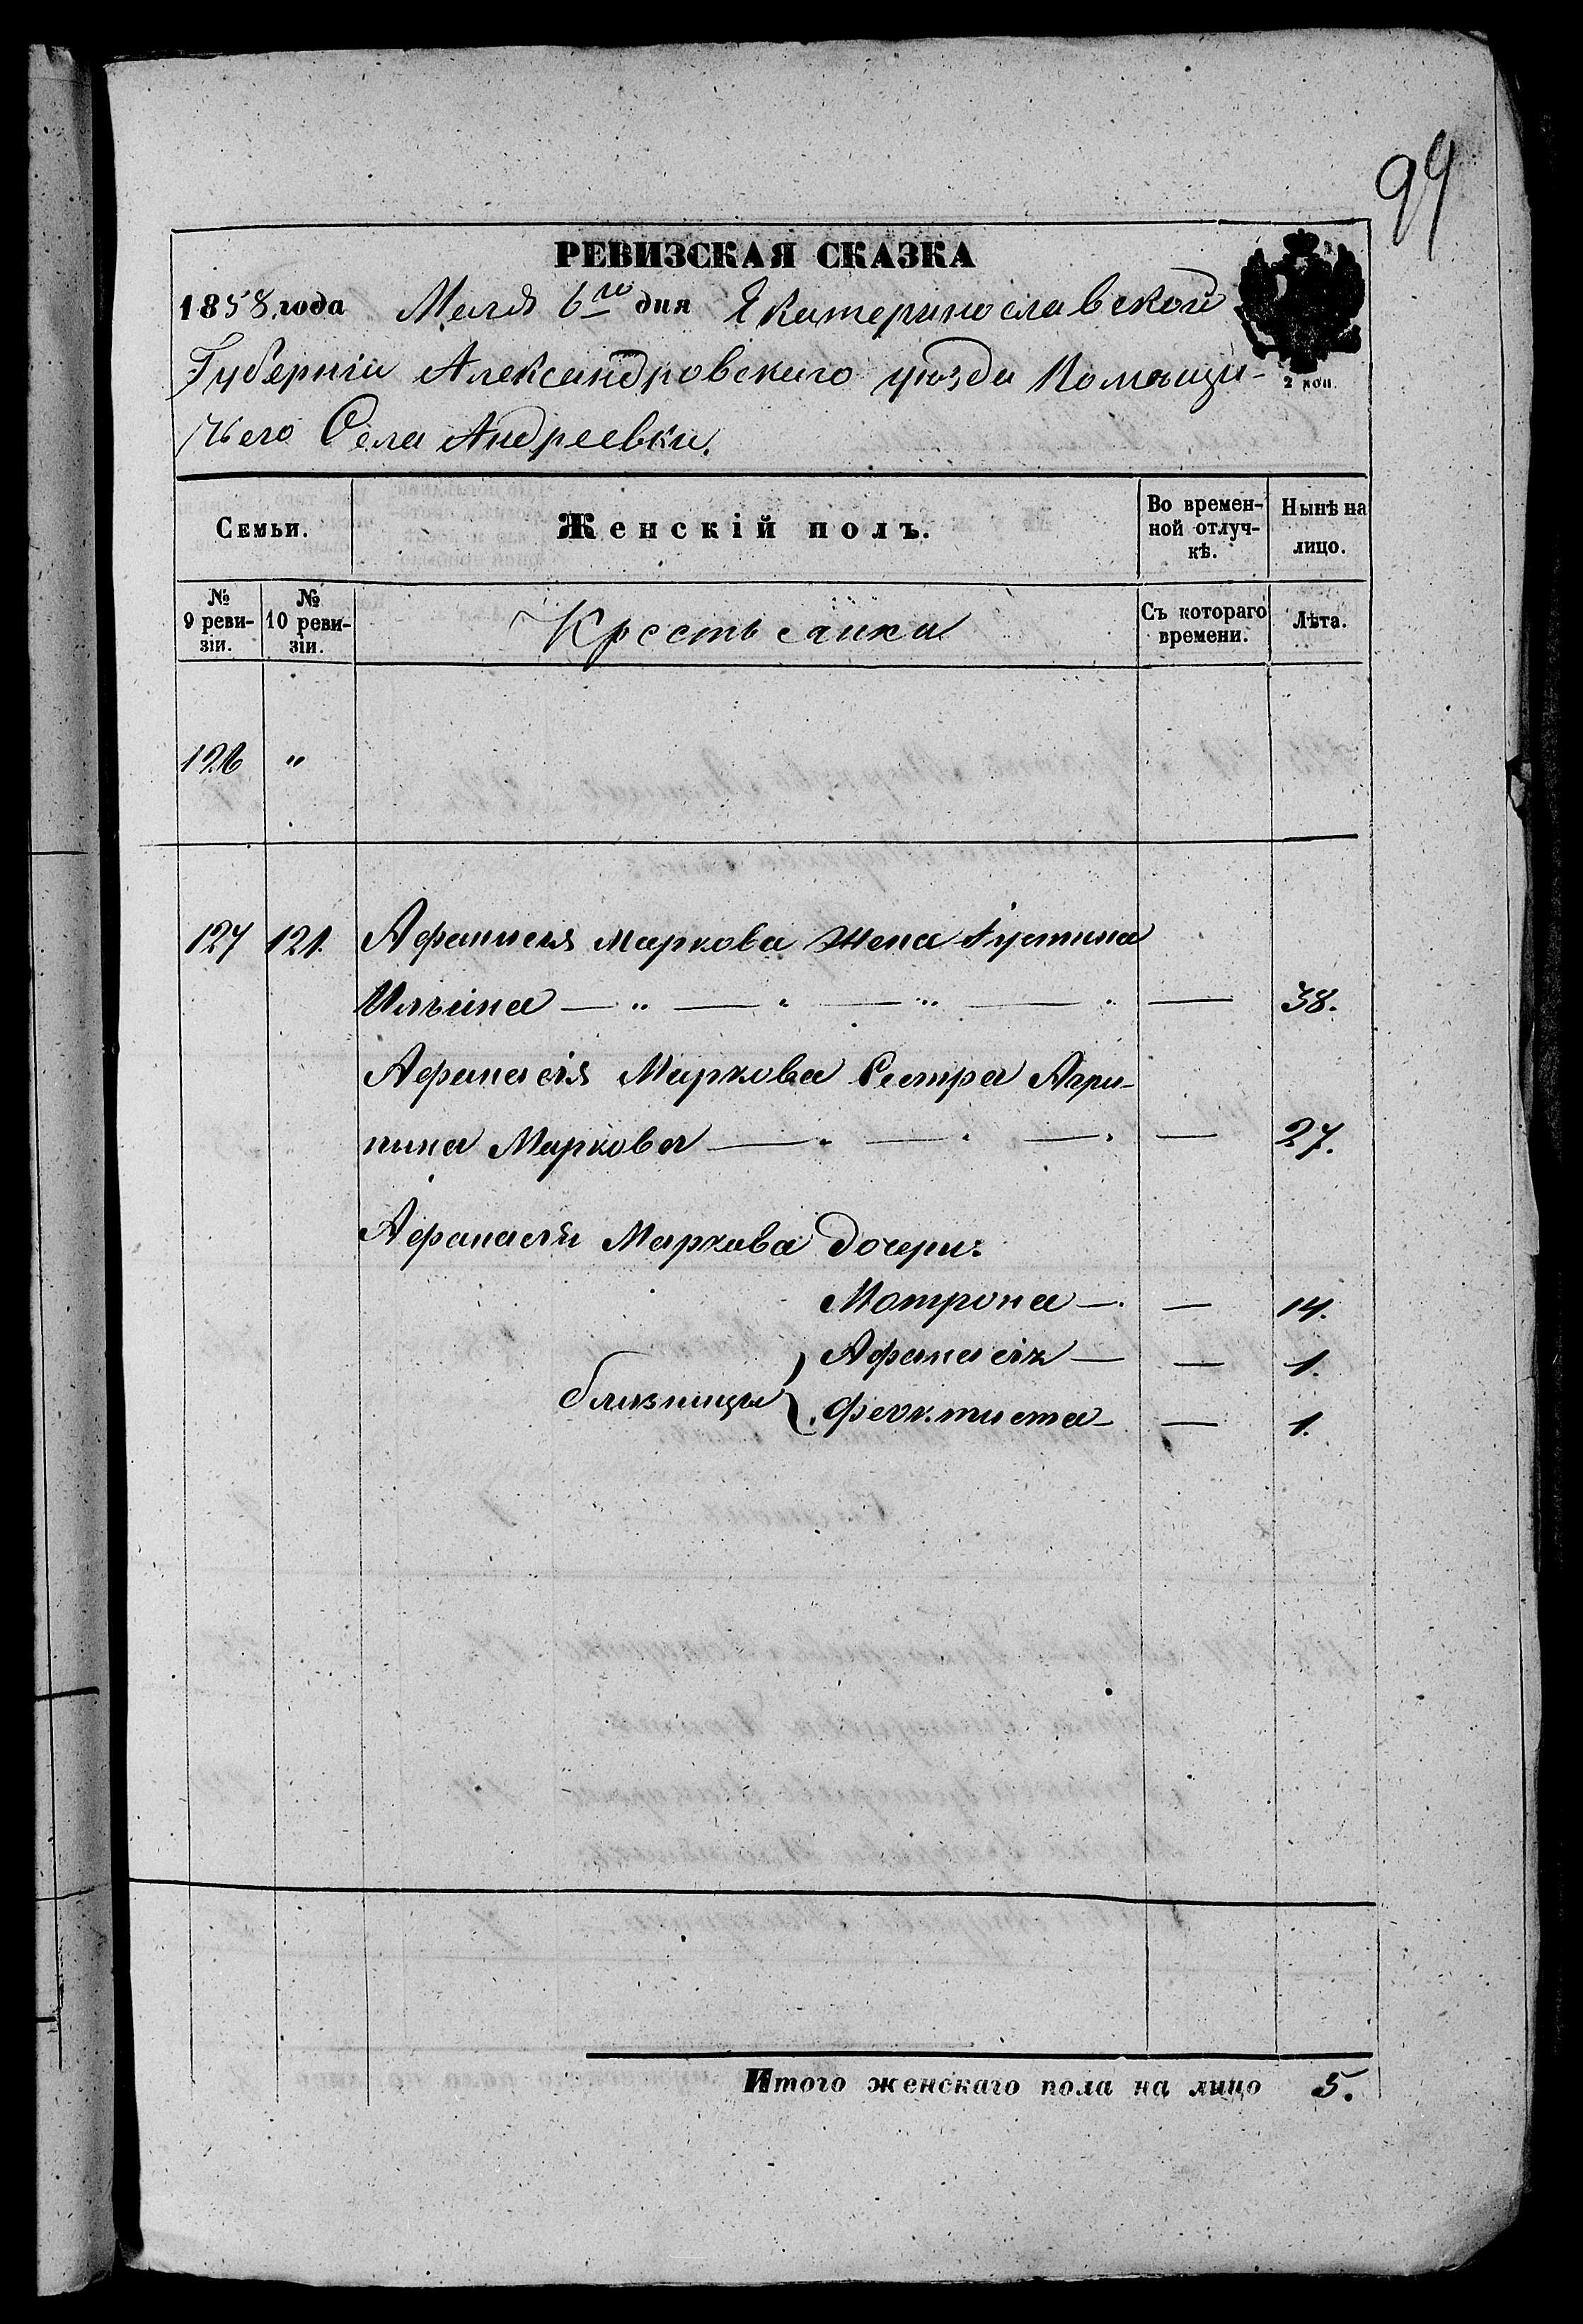 94
РЕВИЗСКАЯ СКАЗКА
1858 года Маія 6го дня Екатеринославской
Губерніи Александровскаго уѣзда Помѣщи-
чьего Села Андреевки.
2 коп.
Семьи.
Женскій полъ.
Во времен-
ной отлуч-
кѣ.
Нынѣ на
лицо.
№
9 реви-
зіи.
№
10 реви-
зіи.
Крестьянка
Съ котораго
времени.
Лѣта.
126 "
127 121. Афанасія Маркова жена Іустина
Ильина — " — " — " — " — 38.
Афанасія Маркова Сестра Агри-
пина Маркова — " — " — " — 27.
Афанасія Маркова дочери:
Мотрона — — 14.
Афанасія — — 1.
близницы
Феоктиста — — 1.
Итого женскаго пола на лицо 5.